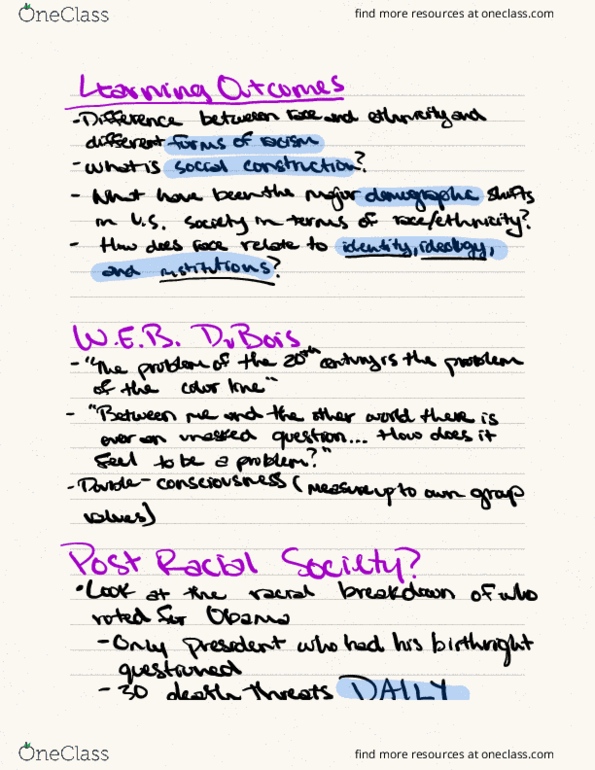 OneClass
find more resources at oneclass.com
Learning Outcomes
- Difference between race and ethnicity and
different forms of racism
- What is social construction?
- What have been the major demographic shifts
in U.S. society in terms of race/ethnicity?
- How does race relate to identity, ideology,
and institutions?
W.E.B. DuBois
- "The problem of the 20th century is the problem
of the color line"
- "Between me and the other world there is
ever an unasked question... How does it
feel to be a problem?"
- Double-consciousness (measure up to own group
values)
Post Racial Society?
• Look at the racial breakdown of who
voted for Obama
- Only president who had his birthright
questioned
- 30 death threats DAILY
OneClass
find more resources at oneclass.com